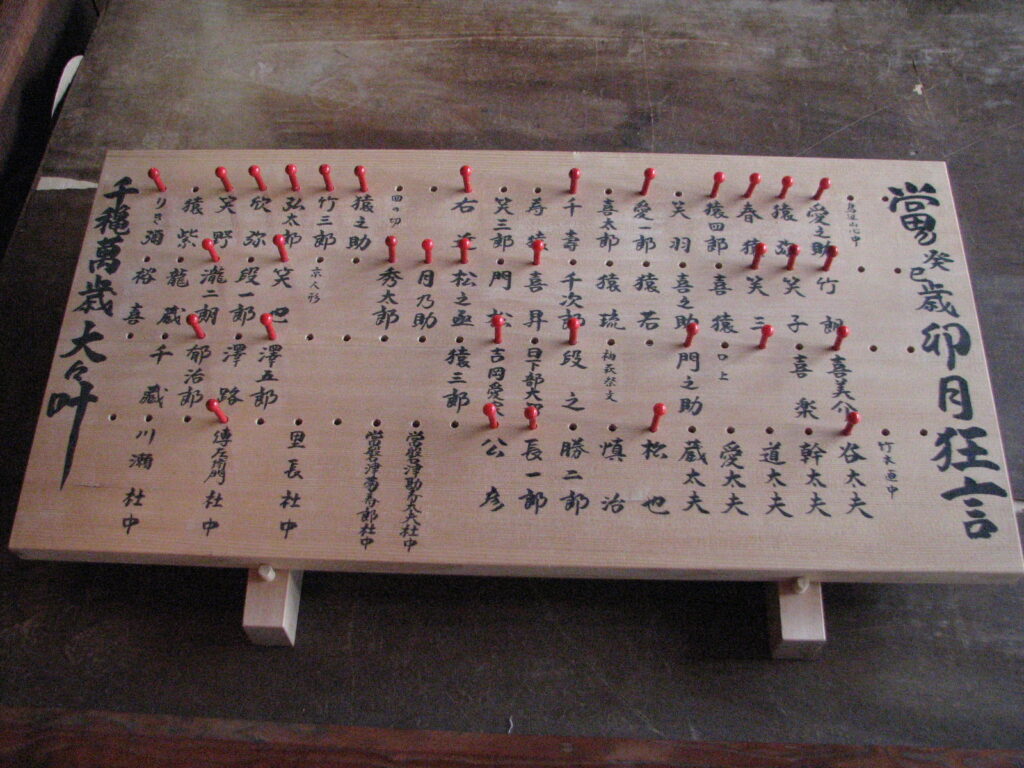 當る癸巳歳卯月狂言
愛之助
猿弥
春猿
猿四郎
笑羽
愛一郎
喜太郎
千寿
寿猿
笑三郎
右近
四の切
猿之助
竹三郎
弘太郎
欣弥
笑野
猿紫
りき彌
竹朗
笑子
笑三
喜猿
喜之助
猿若
猿琉
千次郎
喜昇
門松
松之亟
月乃助
秀太郎
京人形
笑也
段一郎
瀧二朗
龍蔵
裕喜
喜美介
喜楽
口上
門之助
袖萩祭文
段之
猿三郎
澤五郎
澤路
郁治郎
千蔵
谷太夫
幹太夫
道太夫
愛太夫
蔵太夫
松也
慎治
勝二郎
長一郎
公彦
常磐津勘寿太夫社中
常磐津菊寿郎社中
里長社中
傳左衛門社中
川瀬社中
千穐萬歳大々叶